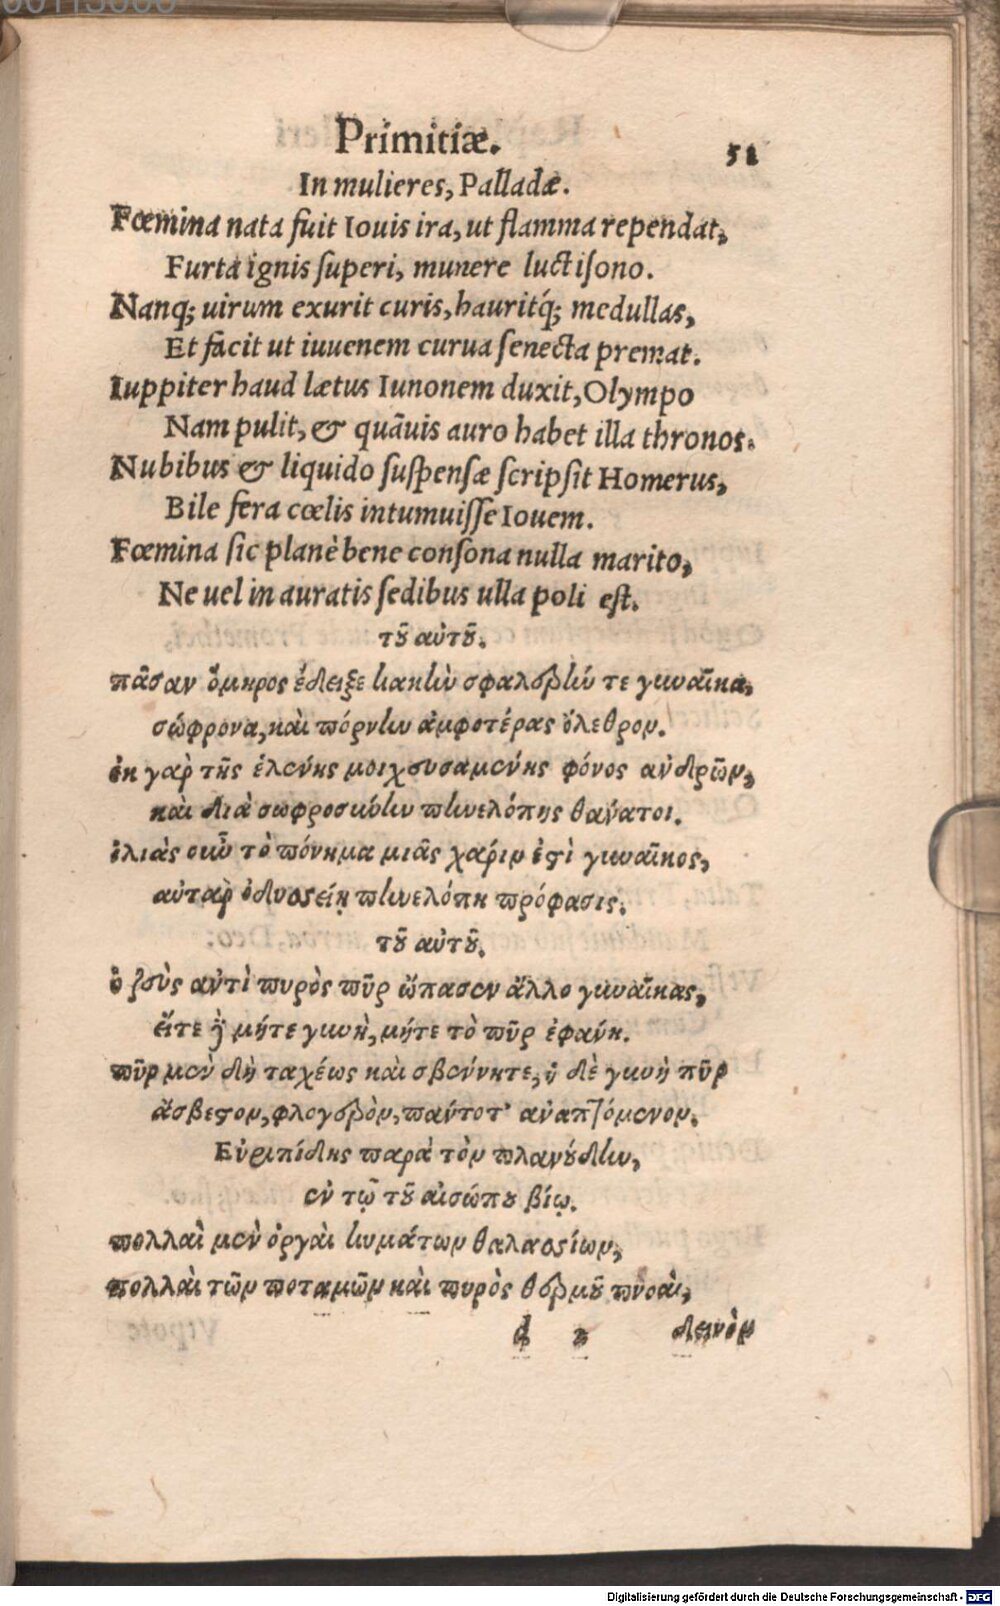 Primitiæ.
51
In mulieres, Palladæ.
Fœmina nata fuit Iouis ira, ut flamma rependat,
Furta ignis superi, munere luctisono.
Nanq; uirum exurit curis, hauritq́; medullas,
Et facit ut iuuenem curua senecta premat.
Iuppiter haud lætus Iunonem duxit, Olympo
Nam pulit, & quãuis auro habet illa thronos.
Nubibus & liquido suspensæ scripsit Homerus,
Bile fera cœlis intumuisse Iouem.
Fœmina sic planè bene consona nulla marito,
Ne uel in auratis sedibus ulla poli est.
τοῦ αὐτοῦ.
πᾶσαν ὅμηρος ἔδειξε κακὴν σφαλερήν τε γυναῖκα,
σώφρονα, καὶ πόρνην ἀμφοτέρας ὄλεθρον.
ἐκ γαρ τῆς ἑλένης μοιχευσαμένης φόνος ανδρῶν,
καὶ διὰ σωφροσύνην πηνελόπης θανάτοι.
ἰλιὰς οὖν τὸ πόνημα μιᾶς χάριν ἐστὶ γυναῖκος,
αὐτὰρ ὀδυσσείῃ πηνελόπη πρόφασις.
τοῦ αὐτοῦ.
ὁ ζεὺς αντὶ πυρὸς πῦρ ὤπασεν ἄλλο γυναῖκας,
εἴτε δὲ μήτε γυνὴ, μήτε τὸ πῦρ ἐφάνη.
πῦρ μὲν δὴ ταχέως καὶ σβέννυτε, ἡ δὲ γυνὴ πῦρ
ἄσβεστον, φλογερὸν, πάντοτ' αναπτόμενον.
Εὐριπίδης παρὰ τὸν πλανούδην,
ἐν τῷ τοῦ αἰσώπου βίῳ.
πολλαὶ μὲν ὀργαὶ κυμάτων θαλασσίων,
πολλαὶ τῶν ποταμῶν καὶ πυρὸς θερμοῦ πνοαὶ,
d 2 δεινὸν
Digitalisierung gefördert durch die Deutsche Forschungsgemeinschaft - DFG